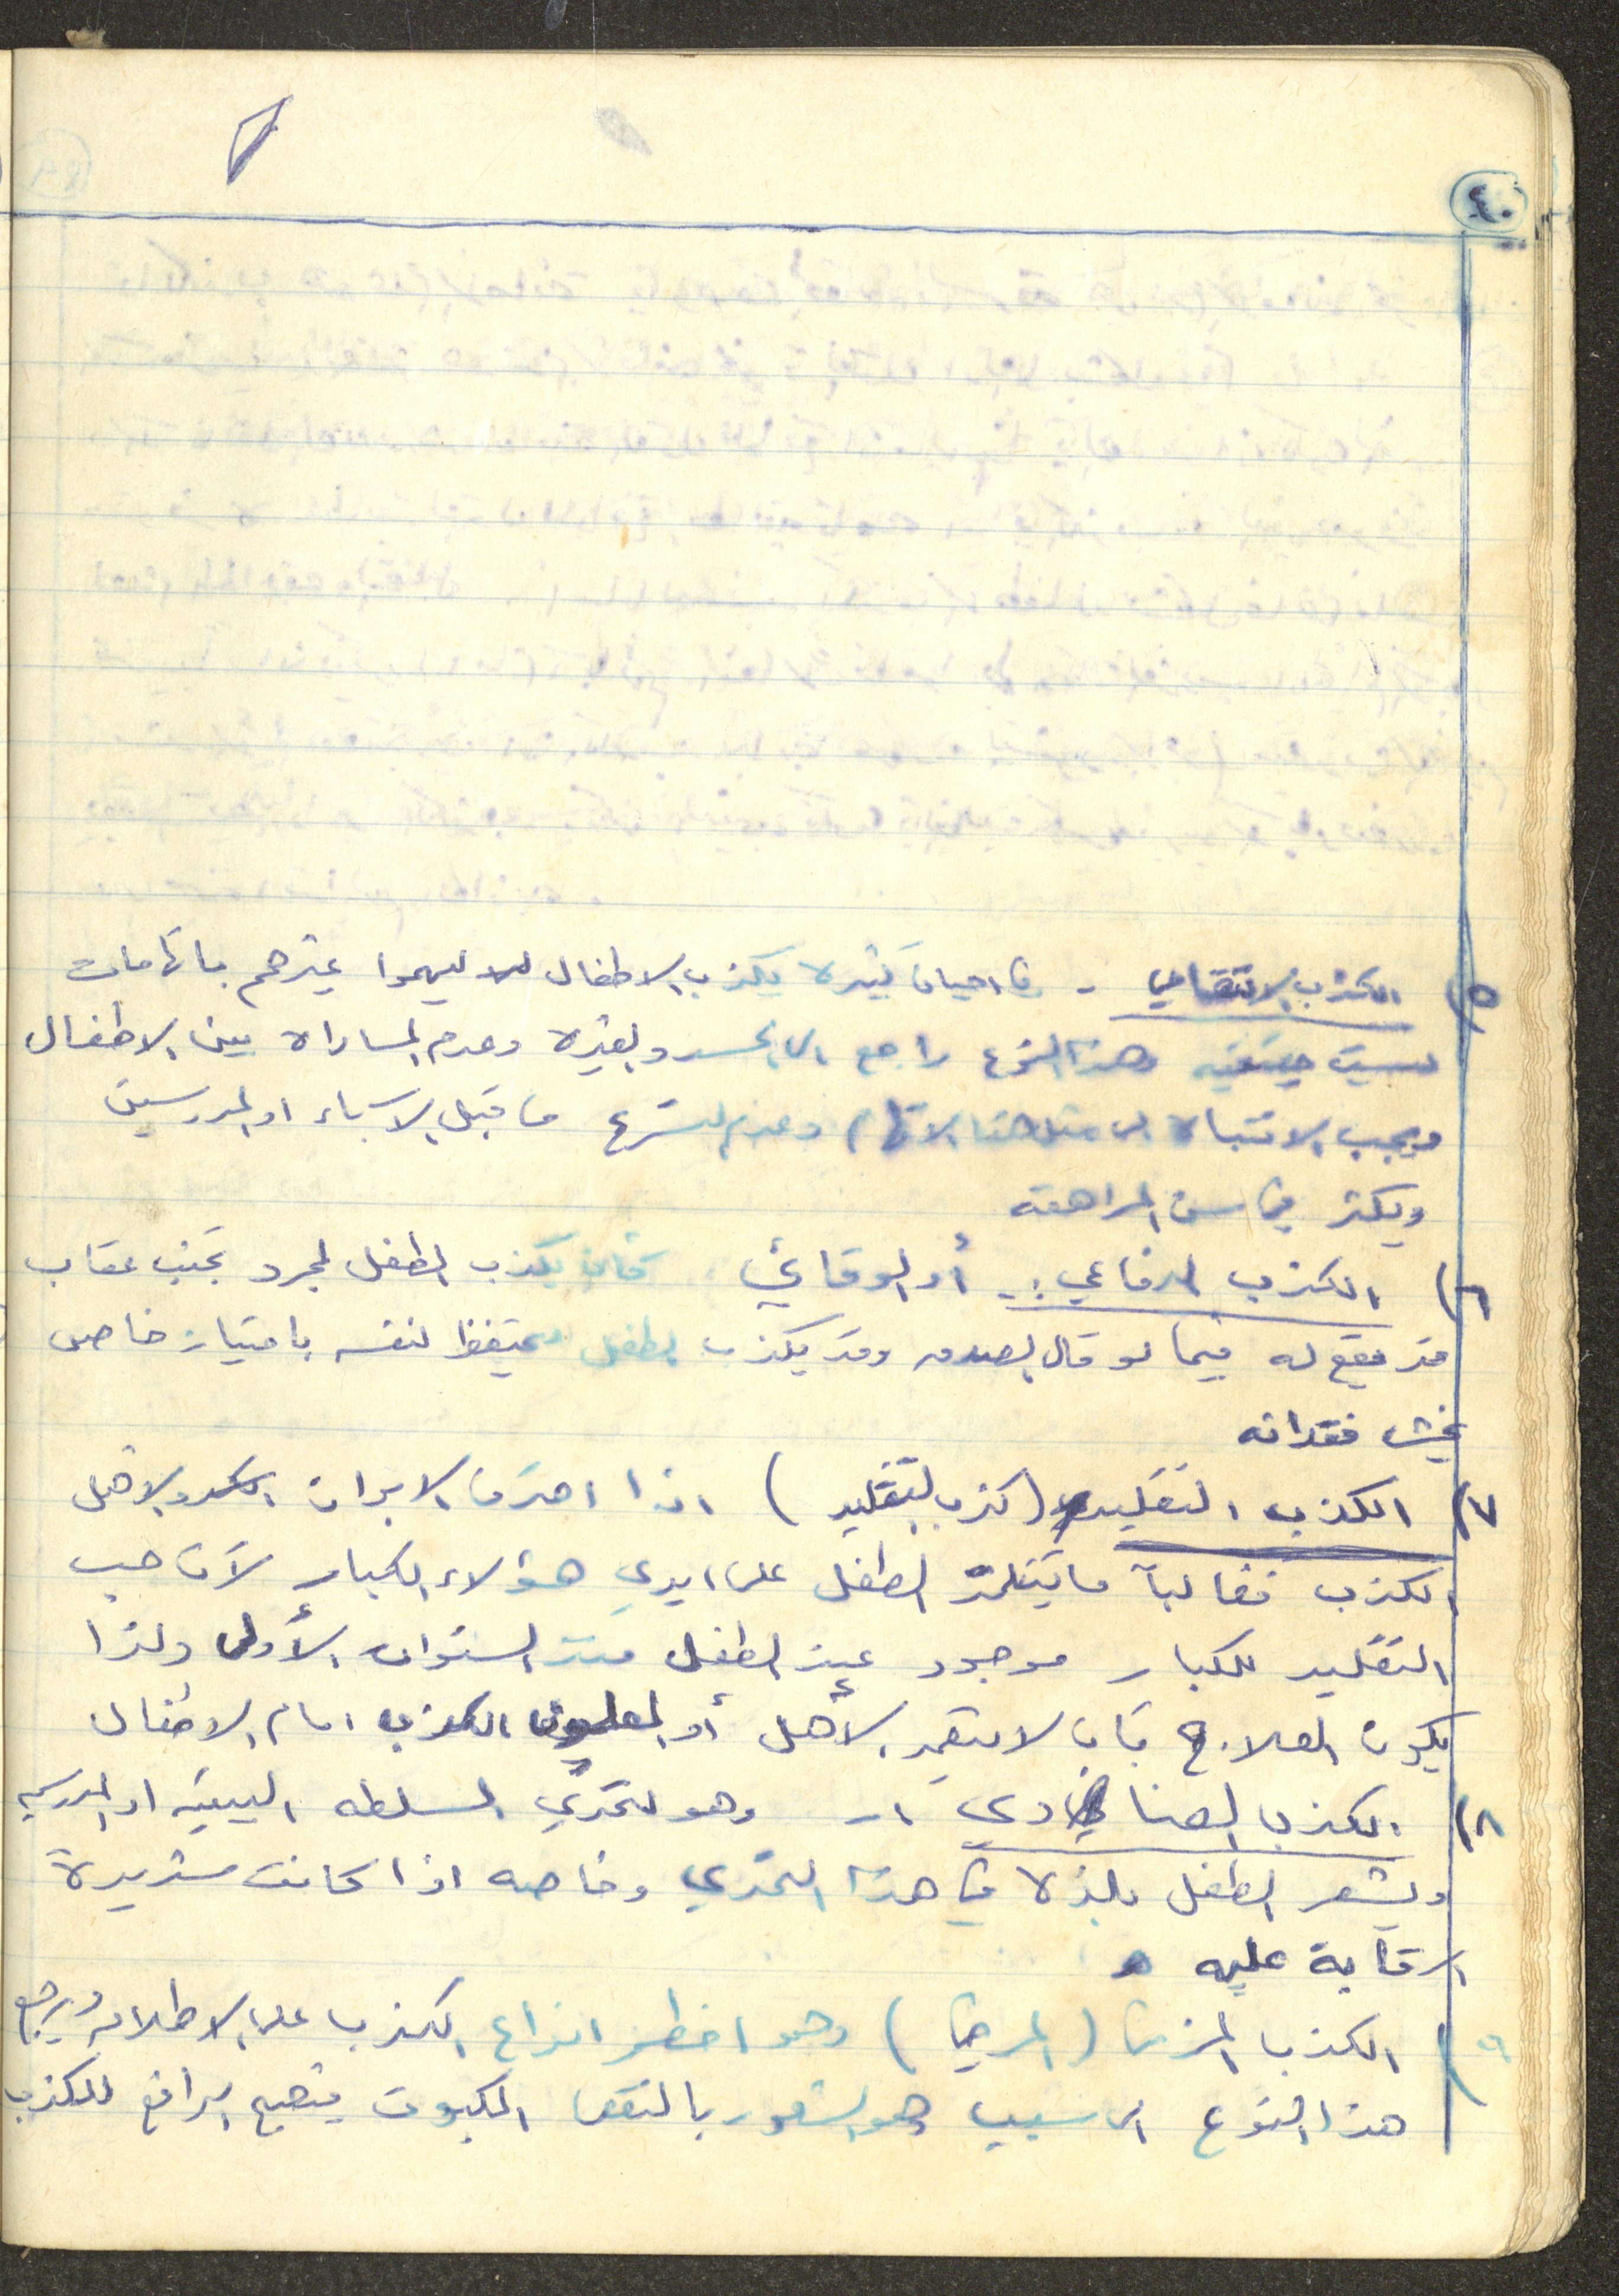 ٤٠
٥) الكذب الانتقامي - في احيان كثيره يكذب الاطفال ليتهموا غيرهم باتهامات
ليست حقيقيه وهذا النوع راجع الى الحسد والغيره وعدم المساراه بين الاطفال
ويجب الانتباه الى مثل هذا الاتهام وعدم التسرع من قبل الاباء او المدرسين
ويكثر في سن المراهقه
٦) الكذب الدفاعي :- أو الوقائي كأن يكذب الطفل لمجرد تجنب عقاب
قد يقع له فيما لو قال الصدق وقد يكذب الطفل ليحتفظ لنفسه بامتياز خاص
يخشى فقدانه
٧) الكذب التقليدي (كذب التقليد) اذا احترف الابوان او الاهل
الكذب فغالباً ما يتتلمذ الطفل على ايدي هؤلاء الكبار لأن حب
التقليد للكبار موجود عند الطفل منذ السنوات الأولى ولذا
يكون العلاج بأن لا يتعمد الأهل أو المعلمون الكذب امام الاطفال
٨) الكذب العنادي :- وهو لتحدي السلطه البيتيه او المدرسيه
ويشعر الطفل بلذه في هذا التحدي وخاصه اذا كانت شديدة
الرقابة عليه
٩) الكذب المزمن (المرضي) وهو اخطر انواع الكذب على الاطلاق ويرجع
هذا النوع الى سبب وهو الشعور بالنقص المكبوت يصبح الدافع للكذب